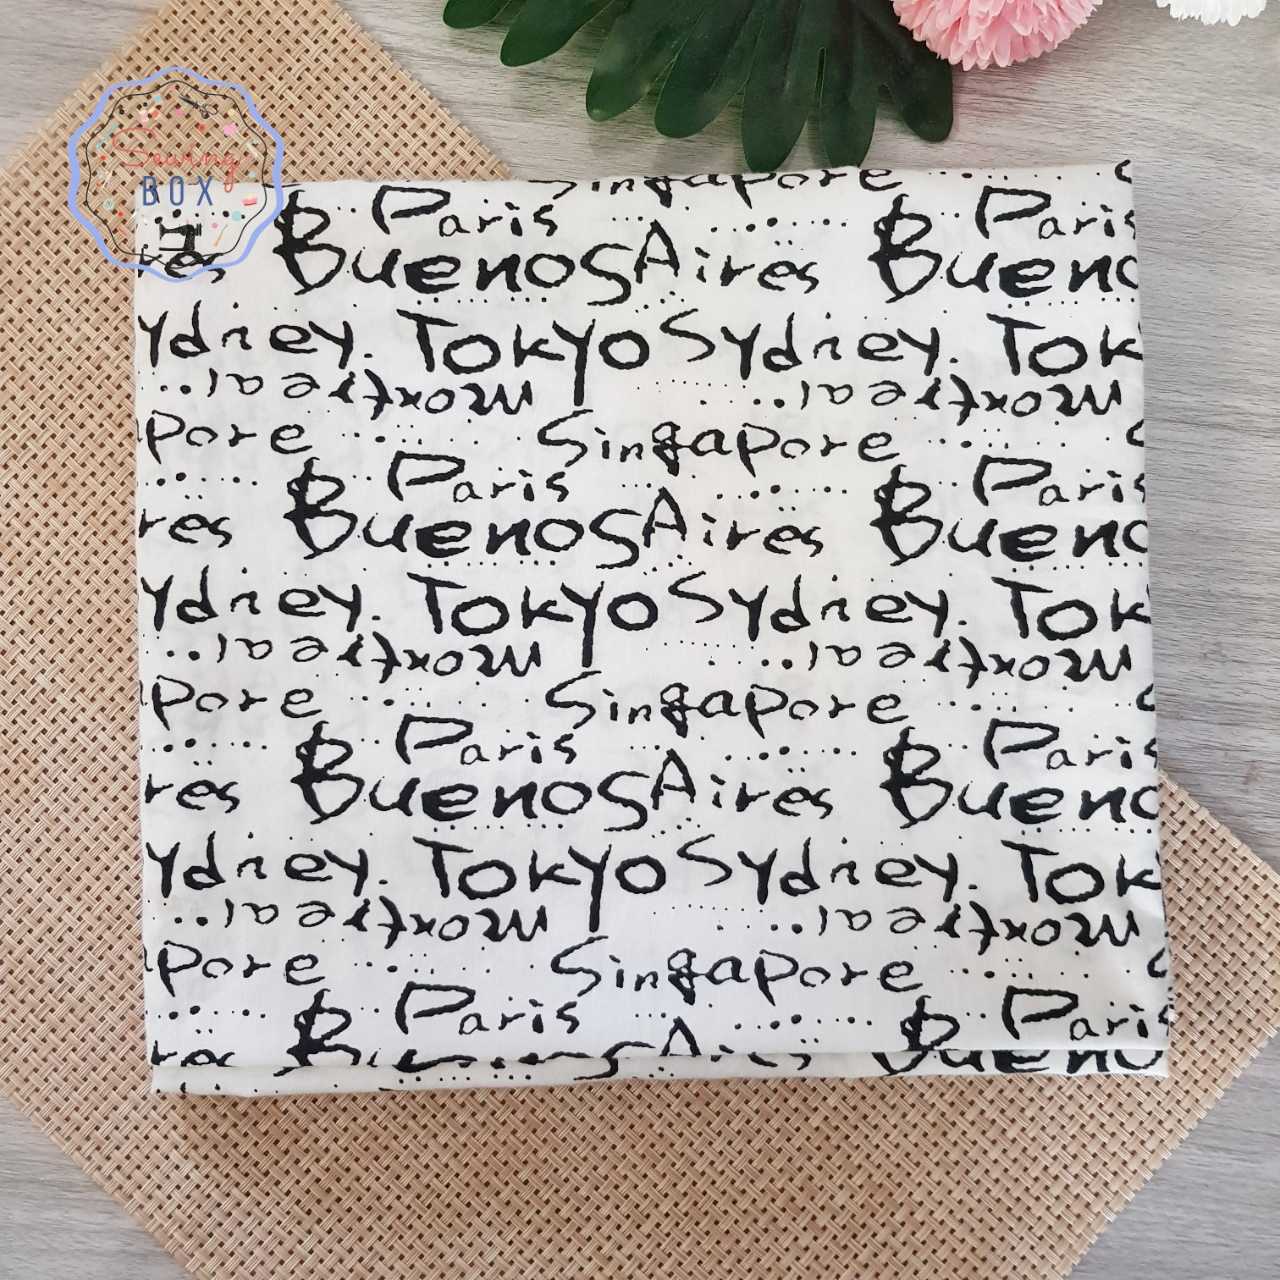 Sewing
BOX
Singapore
Paris Paris
res Buenos Aires Bueno
ydney. Tokyo Sydney. Tok
Montreal.. Montreal..
pore Singapore S
Paris Paris
res Buenos Aires Bueno
ydney. Tokyo Sydney. Tok
Montreal.. Montreal..
pore Singapore S
Paris Paris
res Buenos Aires Bueno
ydney. Tokyo Sydney. Tok
Montreal.. Montreal..
pore Singapore S
Paris Paris
res Buenos Aires Bueno